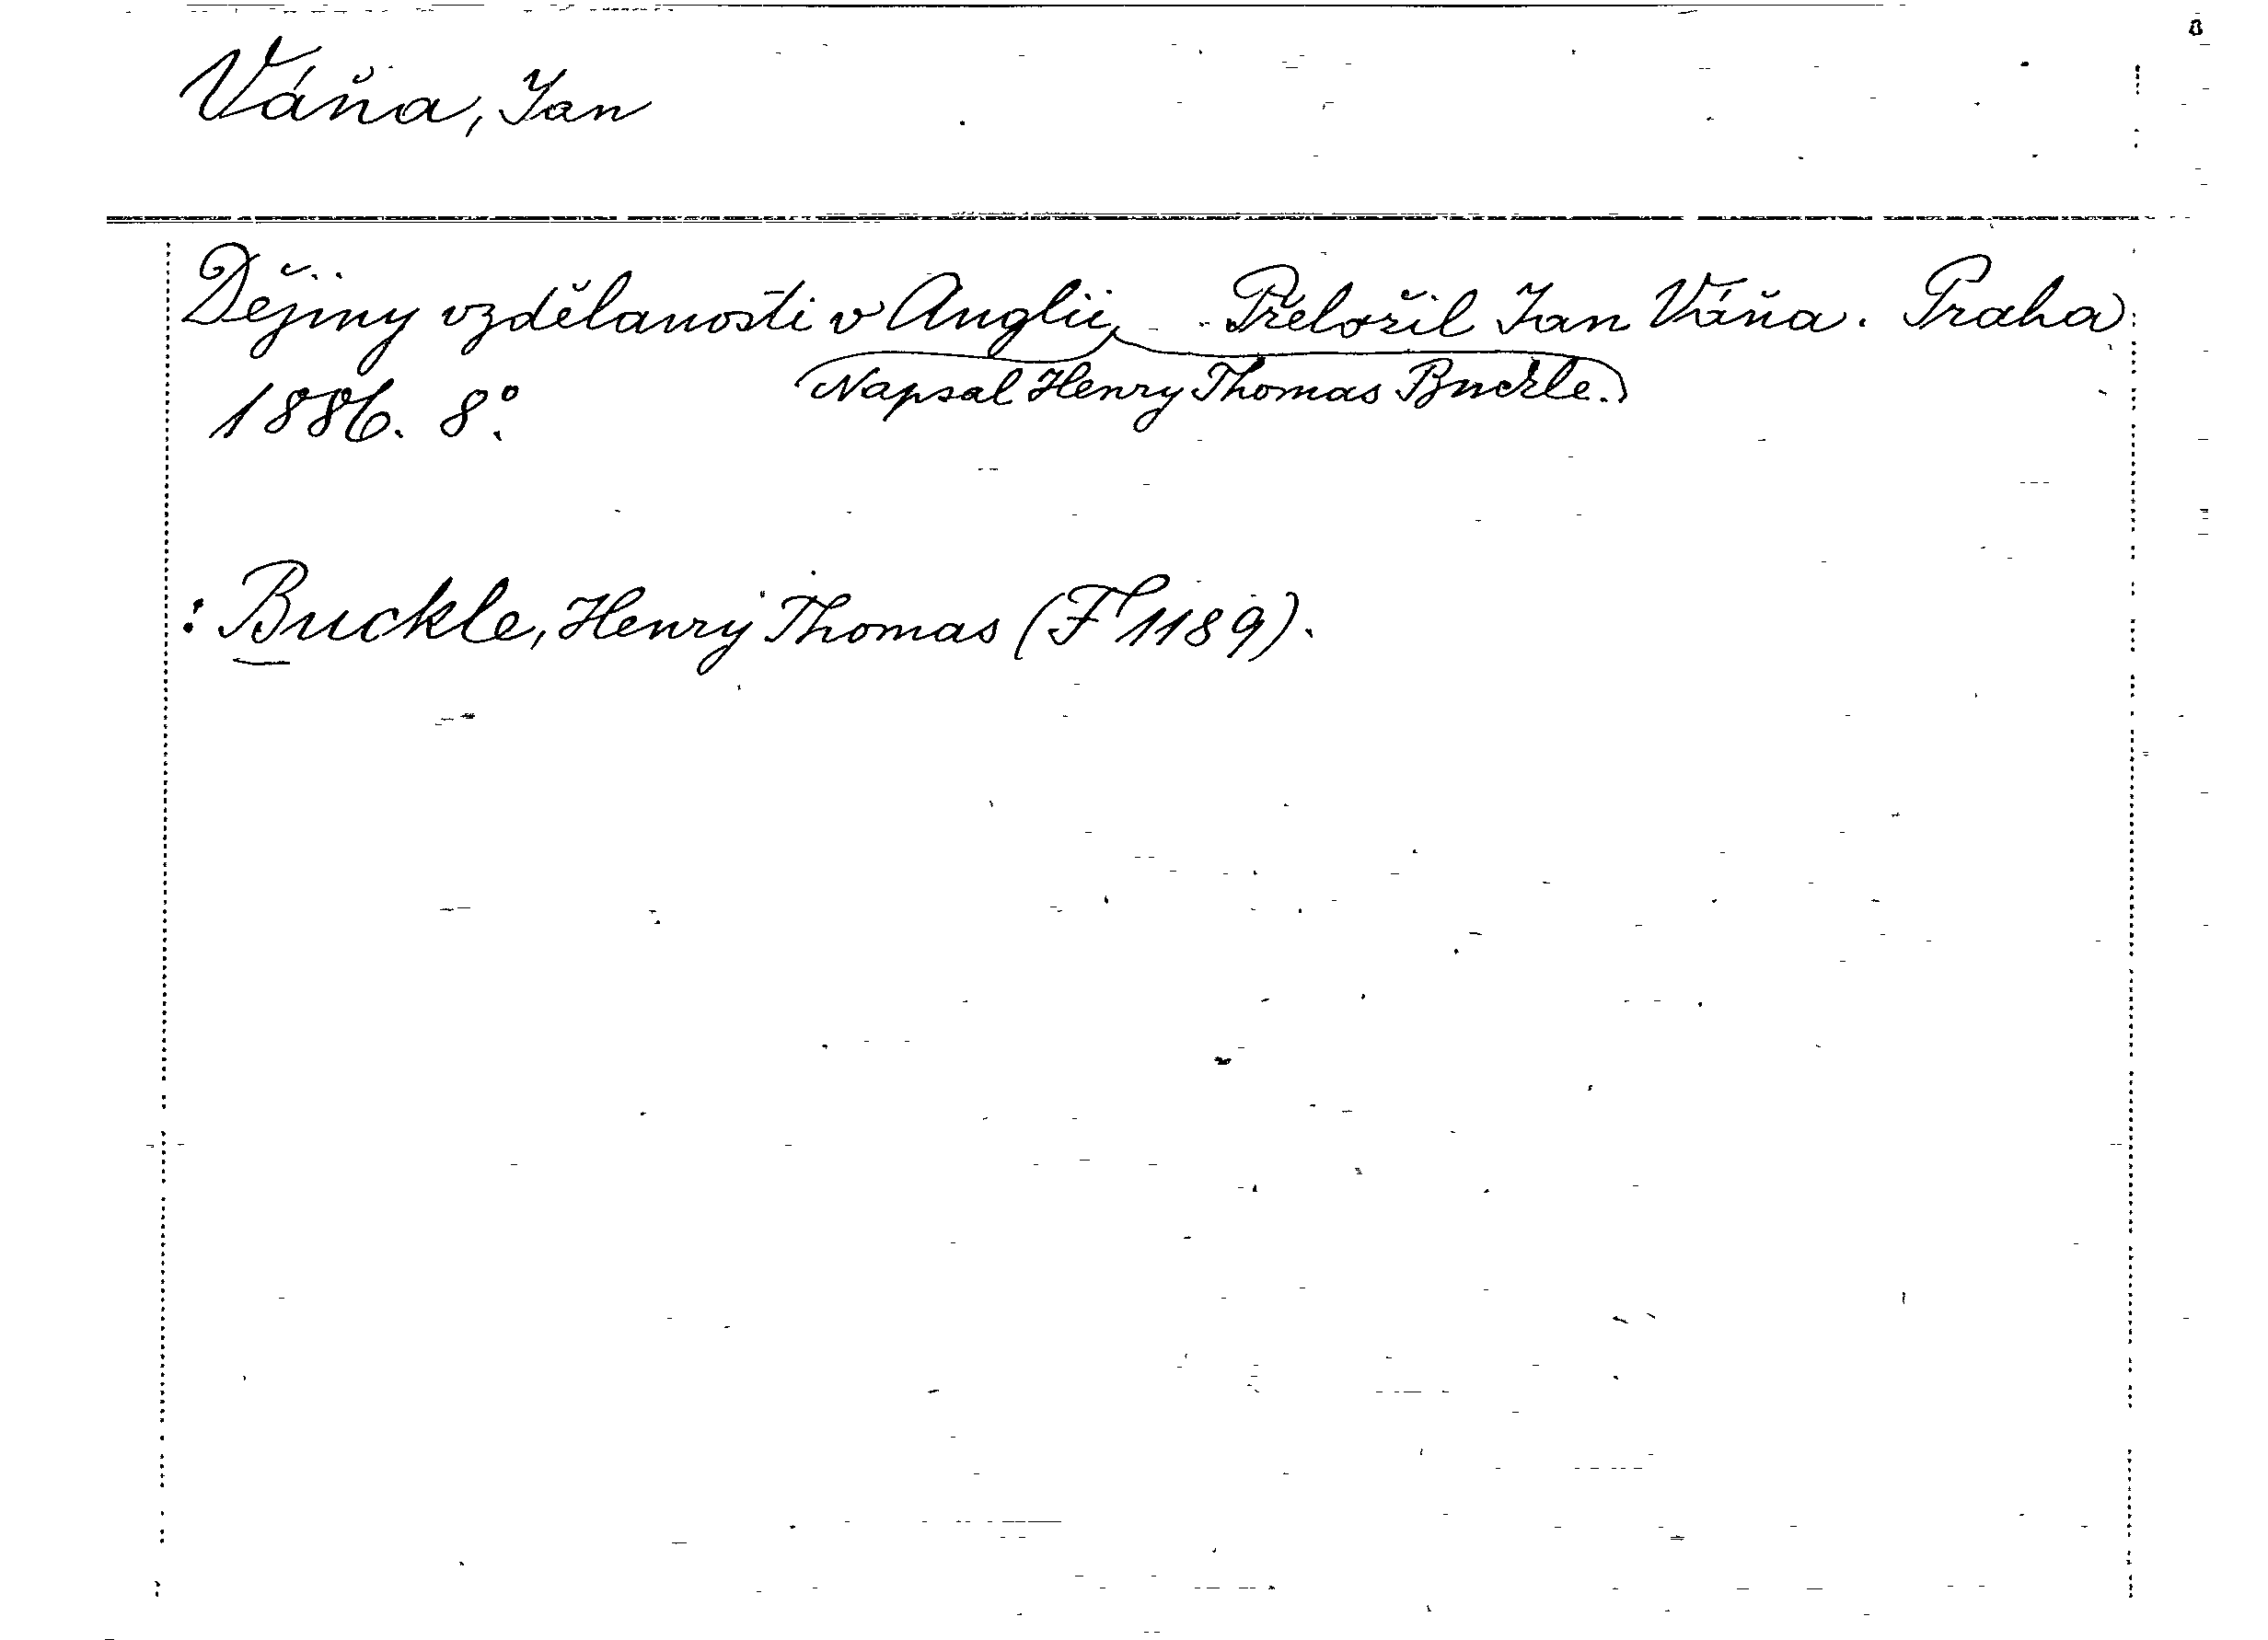 Váňa, Jan
Dějiny vzdělanosti v Anglii, Přeložil Jan Váňa. Praha
Napsal Henry Thomas Buckle.
1886. 8°.
: Buckle, Henry Thomas (F 1189).